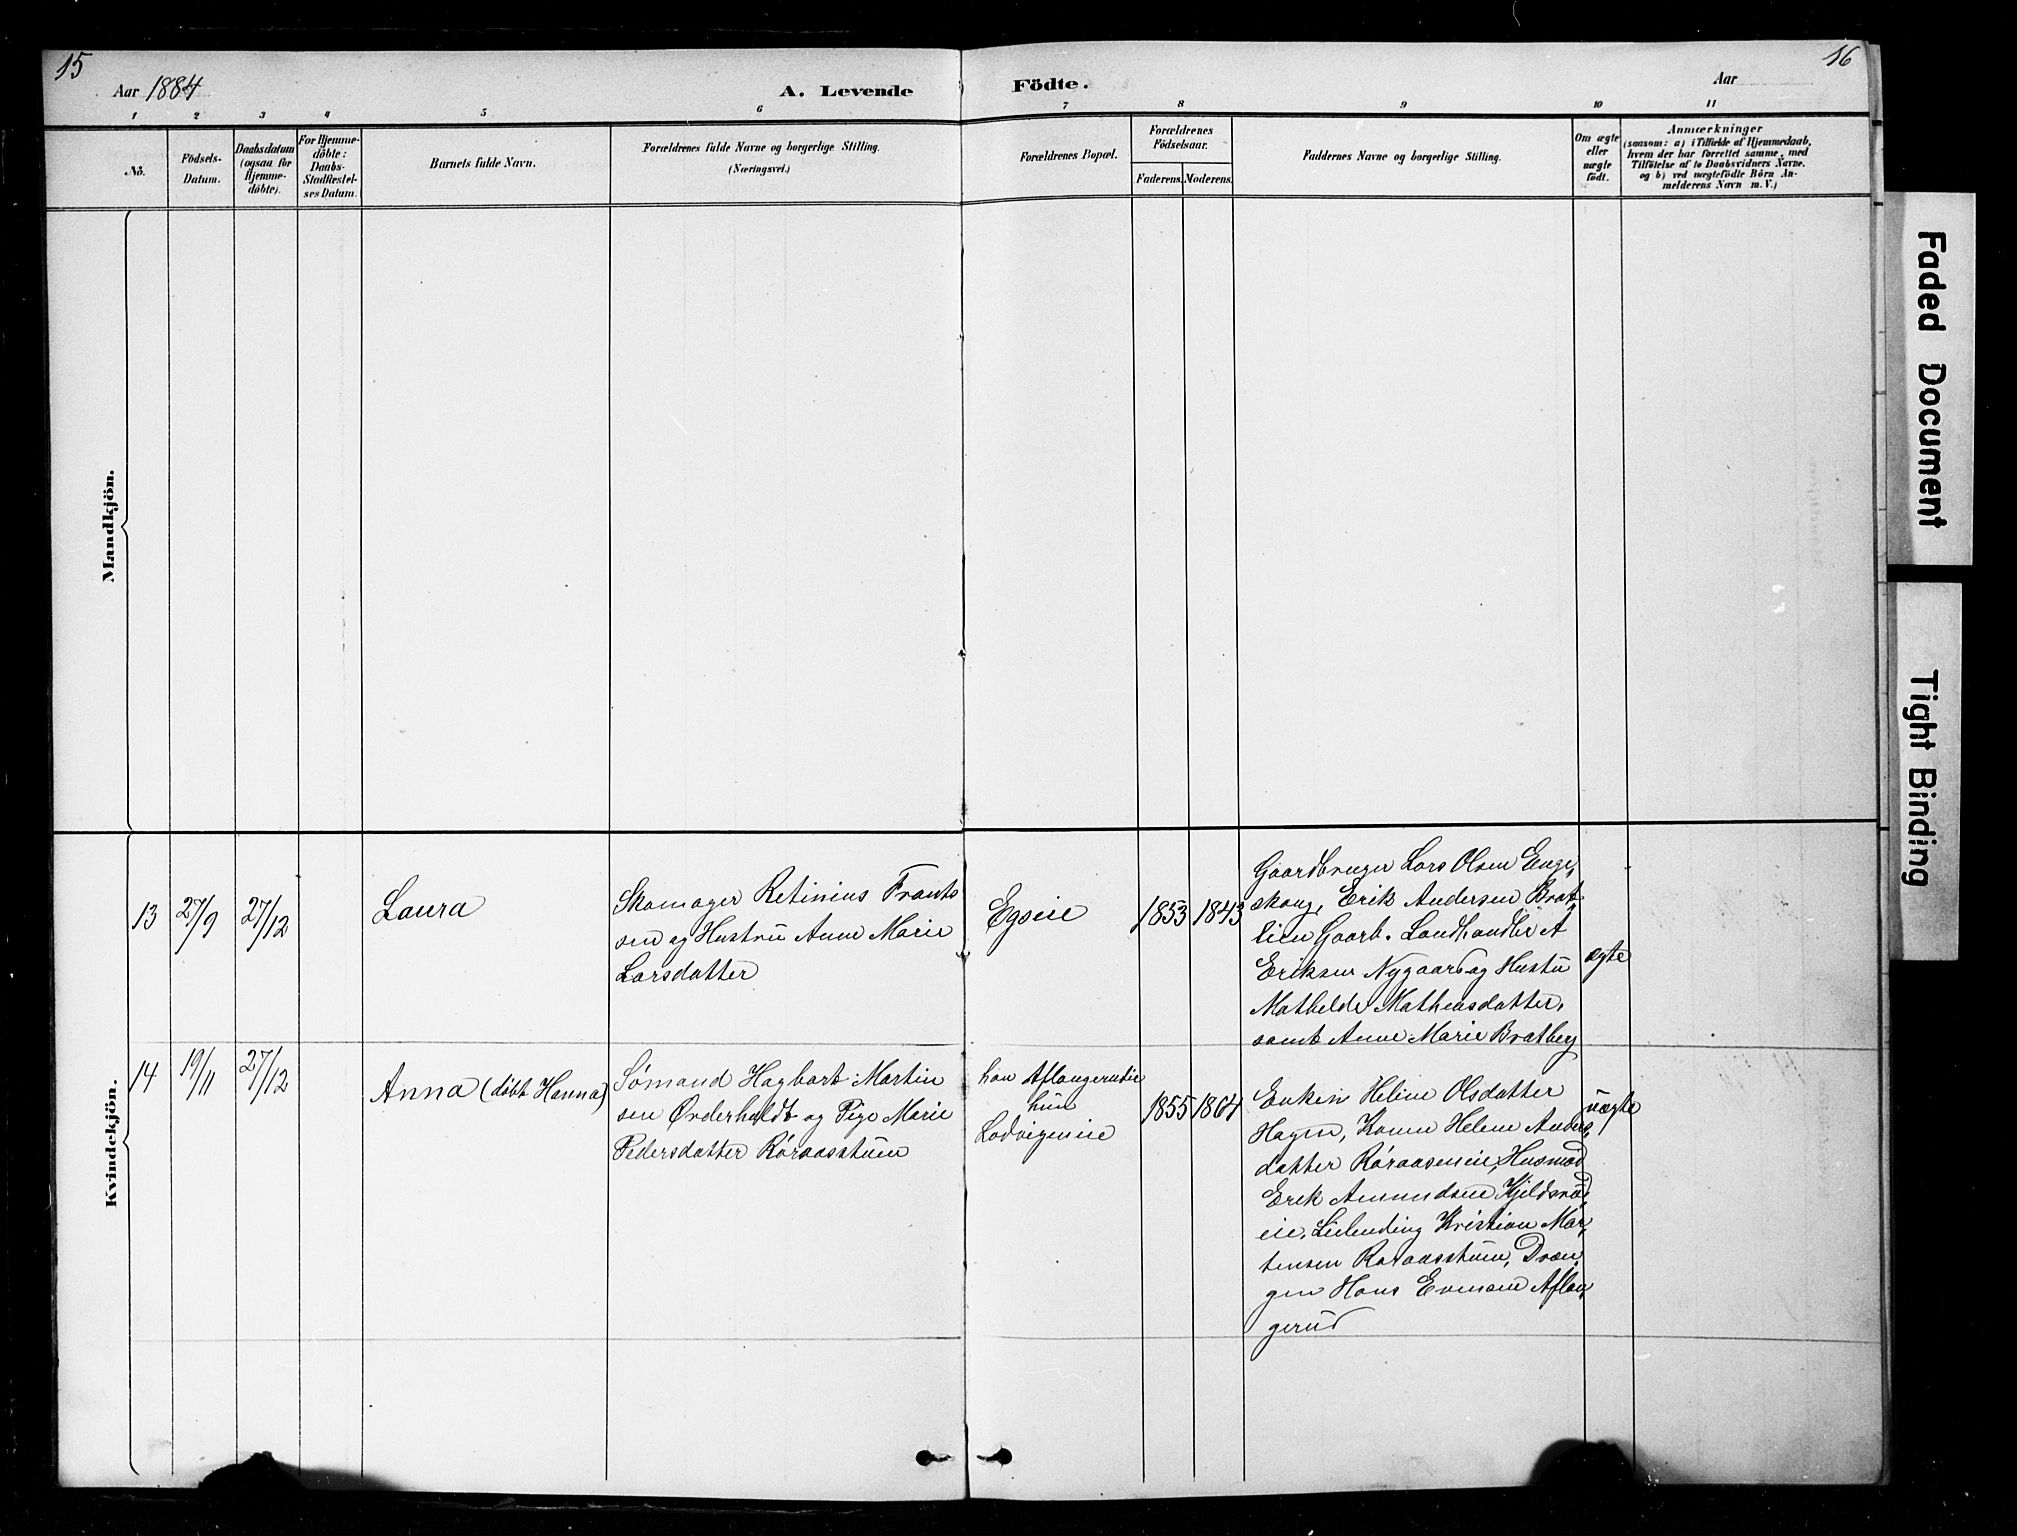 15
16
Aar 1884
A. Levende
Födte.
Aar
1
2
3
4
5
6
7
8
9
10
11
Nö.
Födsels-
Datum.
Daabsdatum
(ogsaa for
Hjemme-
döbte).
For Hjemme-
döbte:
Daabs-
Stadfæstel-
ses Datum.
Barnets fulde Navn.
Forældrenes fulde Navne og borgerlige Stilling.
(Næringsvei.)
Forældrenes Bopæl.
Forældrenes
Födselsaar.
Faderens.
Moderens.
Faddernes Navne og borgerlige Stilling.
Om ægte
eller
uægte
födt.
Anmærkninger
(saasom: a) i Tilfælde af Hjemmedaab,
hvem der har forrettet samme, med
Tilföielse af to Daabsvidners Navne,
og b) ved uægtefödte Börn An-
melderens Navn m. V.)
Mandkjön.
Kvindekjön.
13
27/9
27/12
Laura
Skomager Retinius Frants
sen og Hustru Anne Marie
Larsdatter
Egseie
1853
1843
Gaardbruger Lars Olsen Enge,
skaug, Erik Andersen Brat,
lien Gaarb. Landhandler A
Eriksen Nygaard og Hustru
Mathilde Matheasdatter,
samt Anne Marie Bratberg
ægte
14
19/11
27/12
Anna (döbt Hanna)
Sømand Hagbart Martin
sen Ørderhaldt og Pige Marie
Pedersdatter Röraasstuen
han Aflangerudeie
hun
Lodvigeneie
1855
1864
Enken Heline Olsdatter
Hagen, Konen Helene Anders,
datter Röraaseneie, Husmod
Erik Amundsen Kjeldsrød
eie, Leilending Kristian Mar,
tensen Röraasstuen, Dræn,
gen Hans Evensen Aflan,
gerud
uægte
Faded Document
Tight Binding